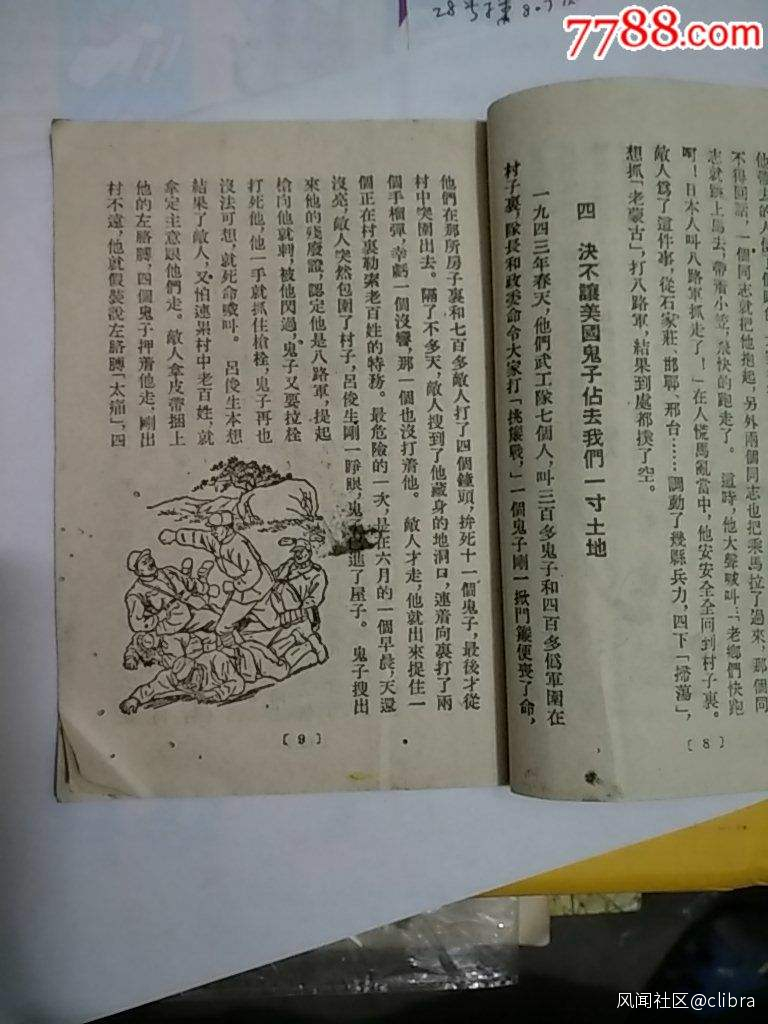 7788.com
28
不得回話，一個同志就把他抱起，另外兩個同志也把乘馬拉了過來，那個同
志就跳上馬去，帶着小笠，飛快的跑走了。　這時，他大聲喊叫：「老鄉們快跑
啊！日本人叫八路軍抓走了！」在人慌馬亂當中，他安安全全回到村子裏。
敵人爲了這件事，從石家莊、邯鄲、邢台……調動了幾縣兵力，四下「掃蕩」，
想抓「老蒙古」，打八路軍，結果到處都撲了空。
四　決不讓美國鬼子佔去我們一寸土地
一九四三年春天，他們武工隊七個人，叫三百多鬼子和四百多僞軍圍在
村子裏，隊長和政委命令大家打「挑簾戰，」一個鬼子剛一掀門簾便喪了命，
〔8〕
他們在那所房子裏和七百多敵人打了四個鐘頭，拚死十一個鬼子，最後才從
村中突圍出去。隔了不多天，敵人搜到了他藏身的地洞口，連着向裏打了兩
個手榴彈，幸虧一個沒響，那一個也沒打着他。　敵人才走，他就出來捉住一
個正在村裏勒索老百姓的特務。最危險的一次，是在六月的一個早晨，天還
沒亮，敵人突然包圍了村子，呂俊生剛一睜眼，鬼子進了屋子。　鬼子搜出
來他的殘廢證，認定他是八路軍，提起
槍向他就刺，被他閃過，鬼子又要拉栓
打死他，他一手就抓住槍栓，鬼子再也
沒法可想，就死命喊叫。　呂俊生本想
結果了敵人，又怕連累村中老百姓，就
拿定主意跟他們走。　敵人拿皮帶捆上
他的左胳膊，四個鬼子押着他走，剛出
村不遠，他就假裝說左胳膊「太痛」，四
〔9〕
风闻社区@clibra